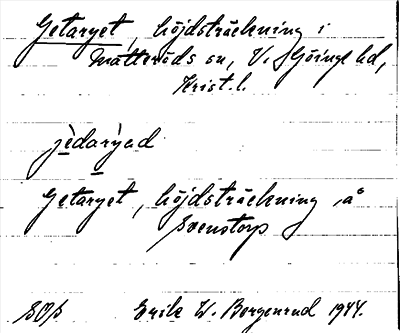 Getaryet, höjdsträckning i
Matteröds sn, V. Göinge hd,
Krist. l.
jèdaryad
Getaryet, höjdsträckning å
Svenstorp
Erik W. Bergenrud 1944.